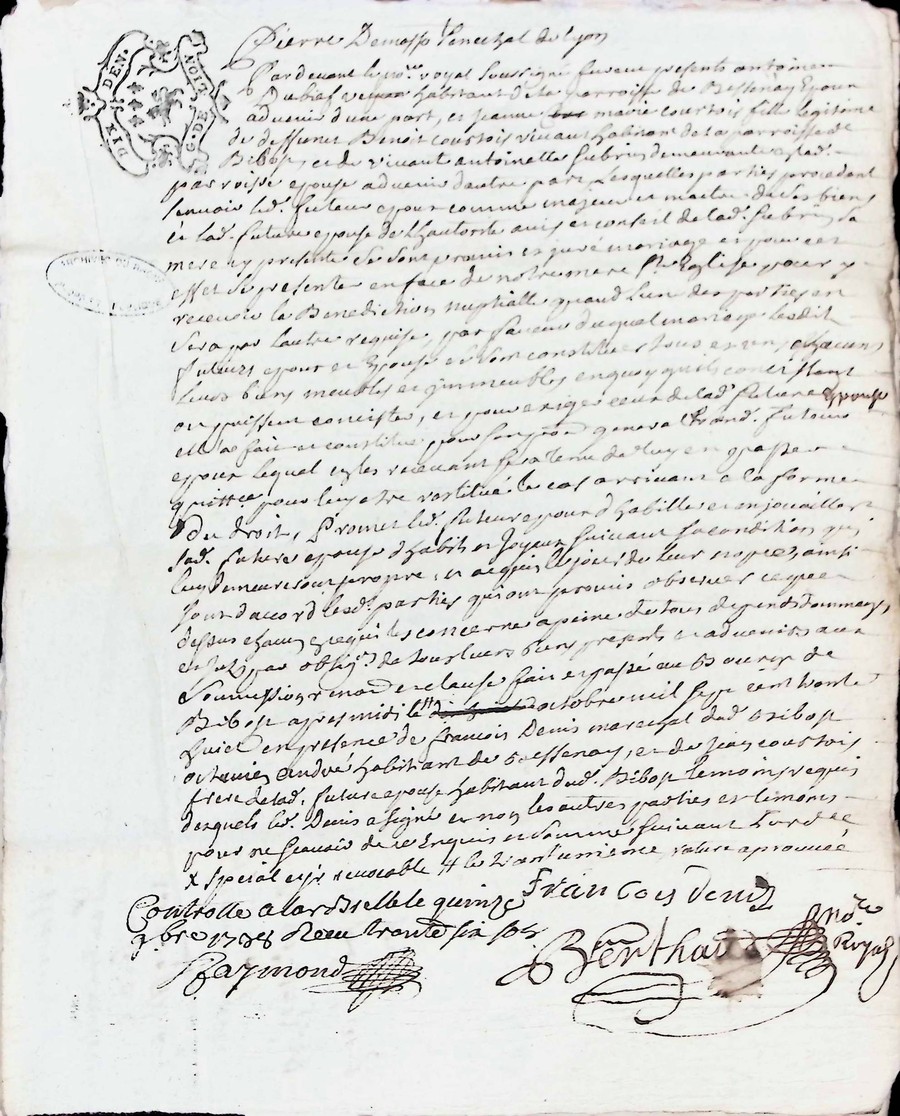 DIX DEN.
G. DE NOIT
Pierre Demasso Senechal de Lyon
Pardevant le no.re royal soussigné furent presents antoine
Dubief habitant de la parroisse de Bessenay Epoux
advenir d'une part, et jeanne marie courtois fille legitime
de deffunct Benoit courtois vivant habitant de la parroisse de
Bibost, et de vivante antoinette demeurante a lad.
parroisse epouse advenir d'autre part, Lesquelles parties procedant
scavoir led. futeur epoux comme majeur et maitre de ses biens
et lad. future epouse de l'hautorité avis et conseil de lad. sa
mere cy presente se sont promis et juré mariage et pour cet
effet se presenter en face de notre mere Ste Eglise pour y
recevoir la Benediction nuptialle quand l'un des parties en
sera par l'autre requise, par faveur duquel mariage lesdit
futeurs epoux et Epouse se sont constitués tous et uns chacuns
leurs biens meubles et immeubles en quoy qu'ils concistent
ou puissent concister, et pour exiger ceux de lad. future Epouse
elle a fait et constitué pour son general led. futeur
epoux lequel les recevant sera tenu de luy en passer
quittce pour luy etre restitué le cas arrivant a la forme
Du droit, Promet led. futeur epoux d'habiller et enjoailler
lad. future epouse d'habits et joyeux suivant sa condition qui
luy demeureront propre, et acquis le jour de leur nopces, ainsi
sont d'accord lesd. parties qui ont promis observer ce que
dessus chacun ce qui les concerne a peine de tous depends dommages
par oblig.on de tous leurs biens presents et advenirs aux
soummissions renon et clause fait et passé au Bourg de
Bibost apres midi le # octobre mil sept cent trente
huict en presence de François Denis marechal dud. Bibost
et andré habitant de Bessenay et de jean courtois
frere de lad. future epouse habitant dud. Bibost temoins requis
desquels led. Denis a signé et non les autres parties et temoins
pour ne scavoir de ce Enquis et sommé suivant l'ord.ce
x special et irrevocable # le trantunieme, rature aprouvée
François denis
Controllé a larbrelle le quinze
9bre 1738 Recu trente six sols
Raymond
Berthau no.re Royal